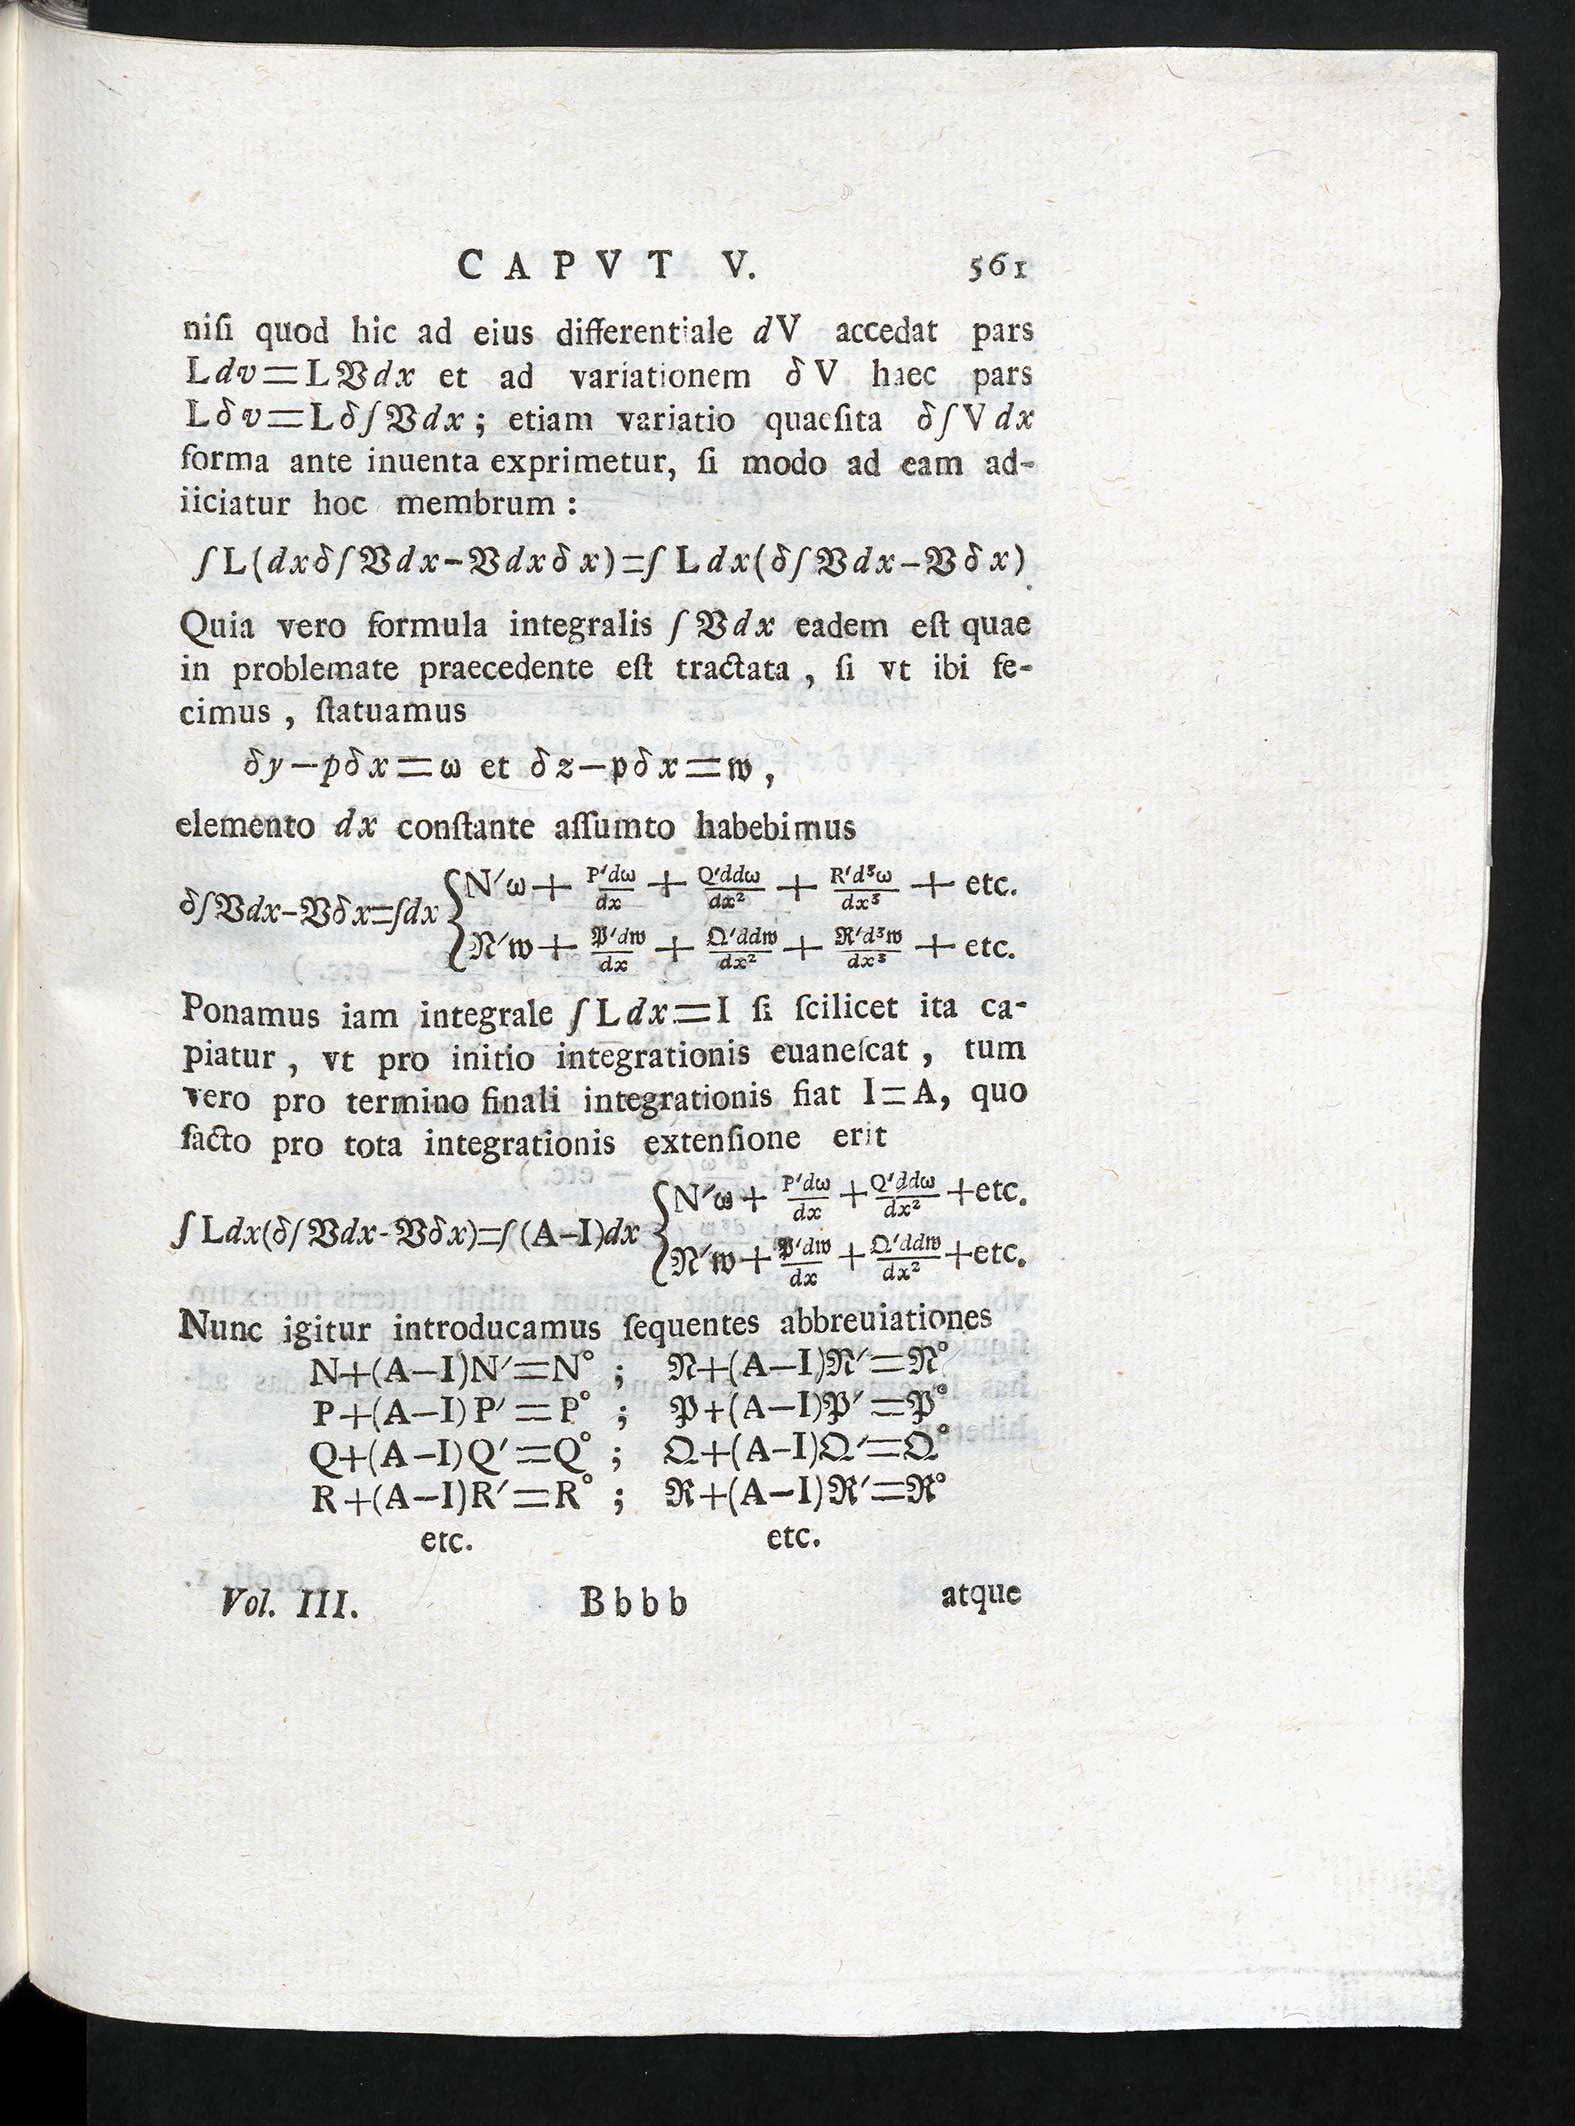 CAPVT V. 561
niſi quod hic ad eius differentiale dV accedat pars
Ldv=L𝔙dx et ad variationem δV haec pars
Lδv=Lδ∫𝔙dx; etiam variatio quaeſita δ∫Vdx
forma ante inuenta exprimetur, ſi modo ad eam ad-
iiciatur hoc membrum:
∫L(dxδ∫𝔙dx-𝔙dxδx)=∫Ldx(δ∫𝔙dx-𝔙δx)
Quia vero formula integralis ∫𝔙dx eadem eſt quae
in problemate praecedente eſt tractata, ſi vt ibi fe-
cimus, ſtatuamus
δy-pδx=ω et δz-𝔭δx=𝔴,
elemento dx conſtante aſſumto habebimus
δ∫𝔙dx-𝔙δx=∫dx { N′ω + P′dω/dx + Q′ddω/dx² + R′d³ω/dx³ + etc.
𝔑′𝔴 + 𝔓′d𝔴/dx + 𝔔′dd𝔴/dx² + ℜ′d³𝔴/dx³ + etc.
Ponamus iam integrale ∫Ldx=I ſi ſcilicet ita ca-
piatur, vt pro initio integrationis euaneſcat, tum
vero pro termino finali integrationis fiat I=A, quo
facto pro tota integrationis extenſione erit
∫Ldx(δ∫𝔙dx-𝔙δx)=∫(A-I)dx { N′ω + P′dω/dx + Q′ddω/dx² + etc.
𝔑′𝔴 + 𝔓′d𝔴/dx + 𝔔′dd𝔴/dx² + etc.
Nunc igitur introducamus ſequentes abbreuiationes
N+(A-I)N′=N° ; 𝔑+(A-I)𝔑′=𝔑°
P+(A-I)P′=P° ; 𝔓+(A-I)𝔓′=𝔓°
Q+(A-I)Q′=Q° ; 𝔔+(A-I)𝔔′=𝔔°
R+(A-I)R′=R° ; ℜ+(A-I)ℜ′=ℜ°
etc. etc.
Vol. III. Bbbb atque